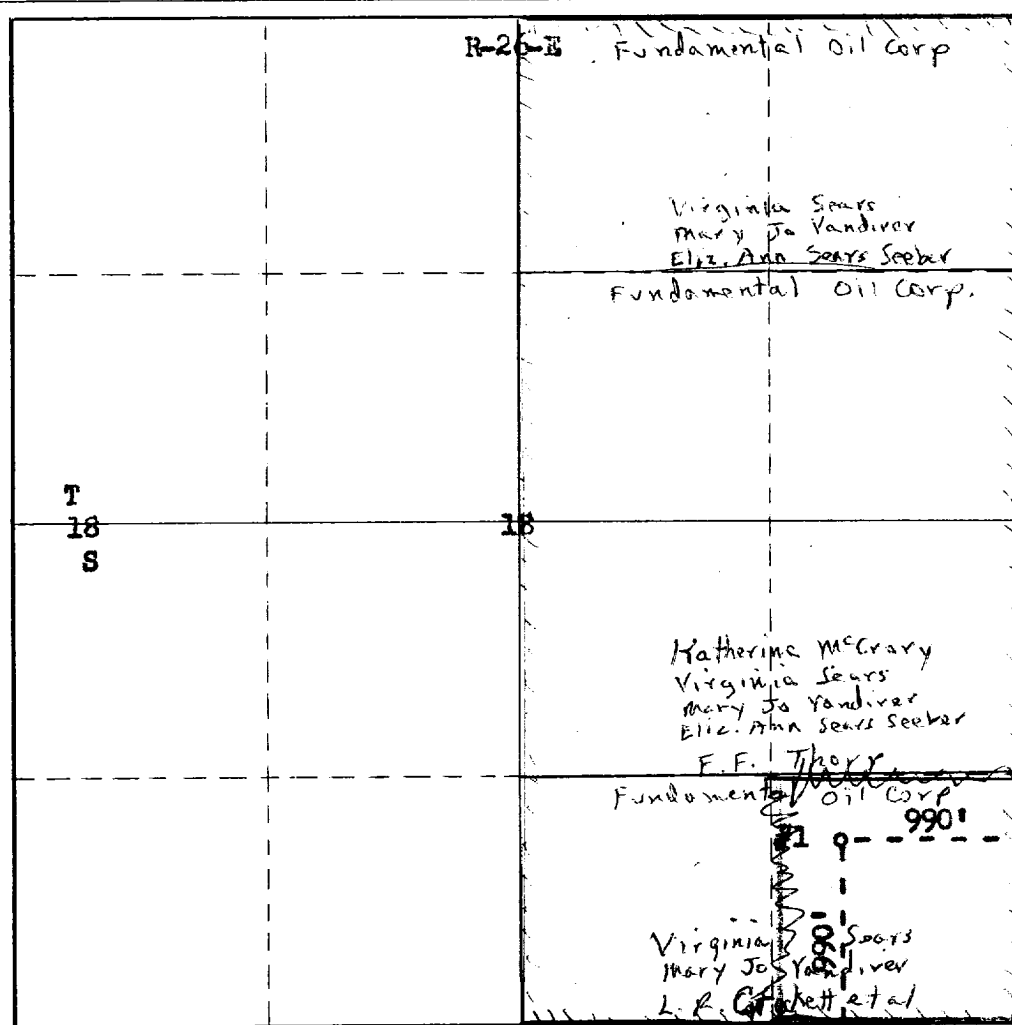 R-26-E Fundamental Oil Corp
Virginia Sears
Mary Jo Vandiver
Eliz. Ann Sears Seeber
Fundamental Oil Corp.
T
18
S
18
Katherine McCrary
Virginia Sears
Mary Jo Vandiver
Eliz. Ann Sears Seeber
F.F.
Fundamental Oil Corp
#1 990'
990'
Virginia Sears
Mary Jo Vandiver
L. R. Crockett et al